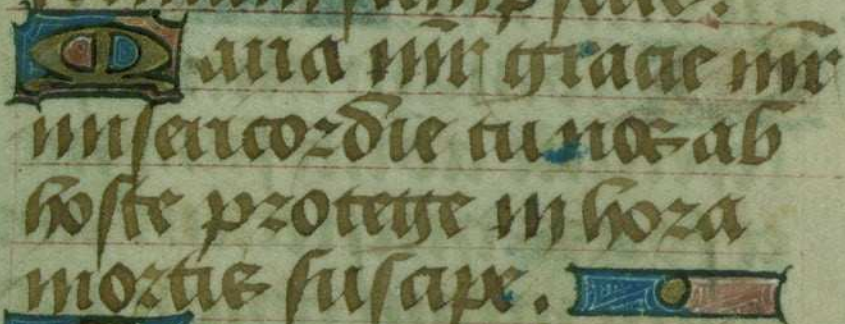 formam sumpseris.
Maria mr̄ gracie mr̄
misericordie tu nos ab
hoste protege in hora
mortis suscipe.